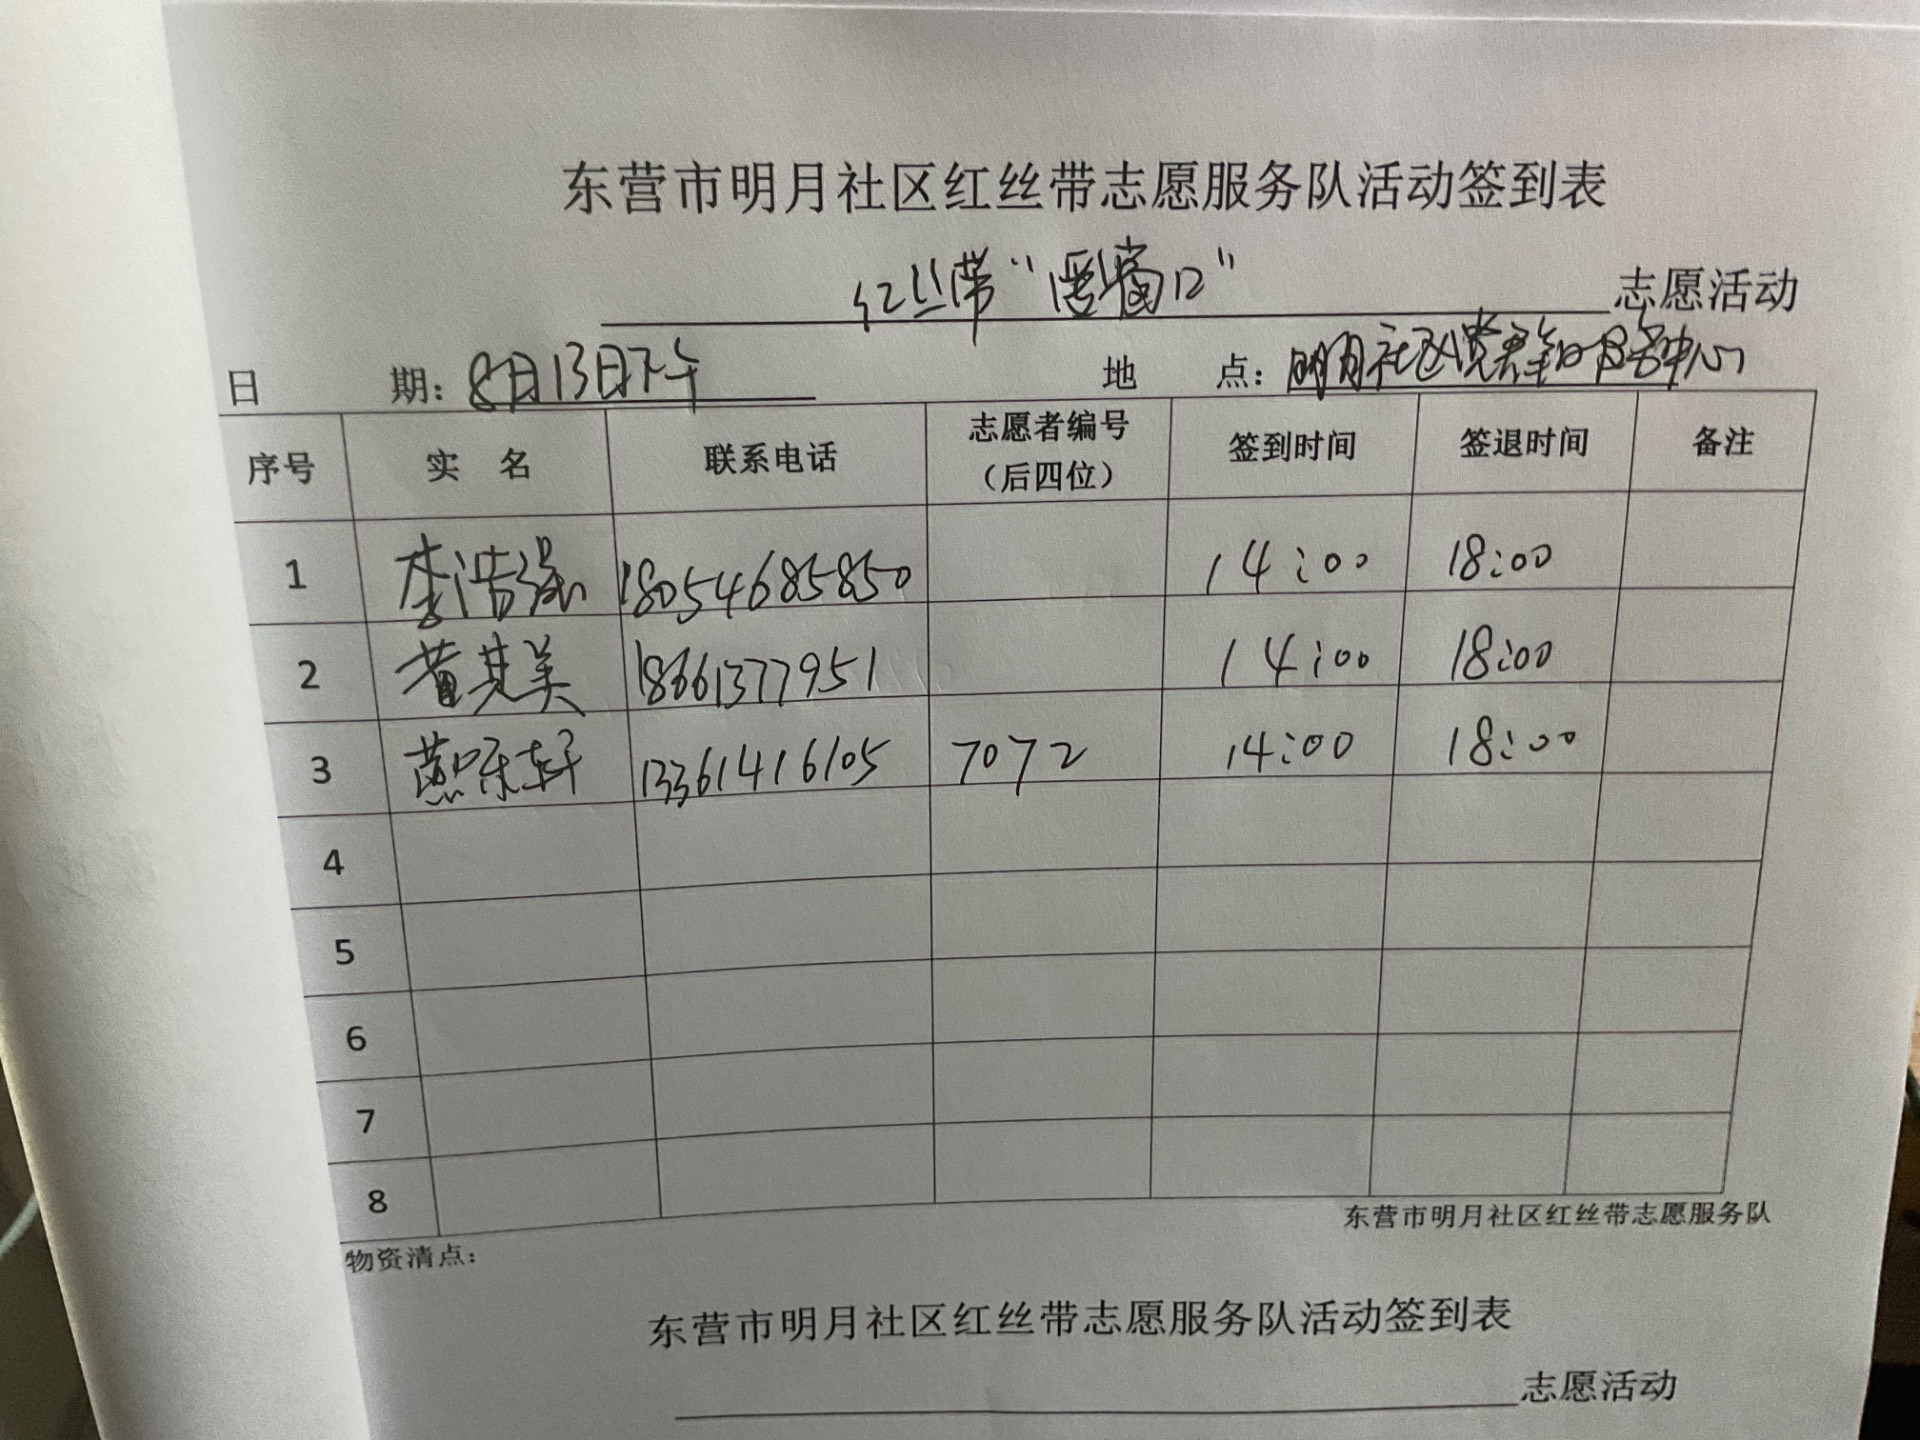 东营市明月社区红丝带志愿服务队活动签到表
红丝带“窗口”志愿活动
日期：8月13日下午 地点：明月社区党群服务中心
序号 实名 联系电话 志愿者编号（后四位） 签到时间 签退时间 备注
1 李浩 18054685850 14:00 18:00
2 黄其美 18661377951 14:00 18:00
3 燕轩 13361416105 7072 14:00 18:00
4
5
6
7
8
东营市明月社区红丝带志愿服务队
物资清点：
东营市明月社区红丝带志愿服务队活动签到表
志愿活动